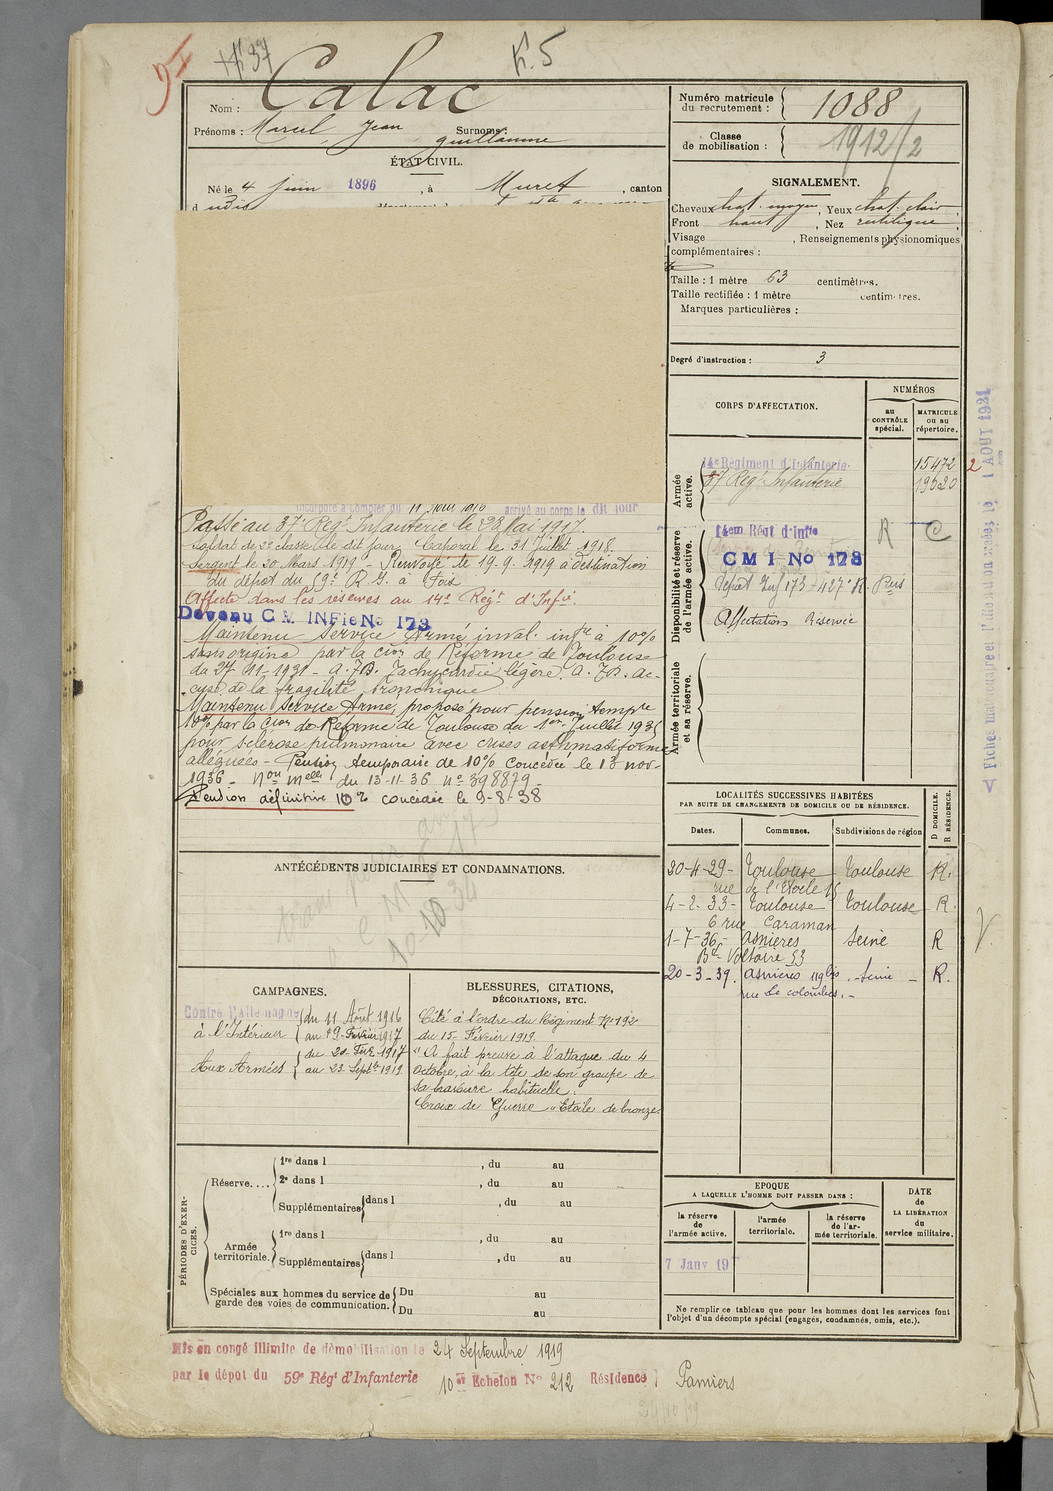 +K 37
K.5
Nom : Calac
Prénoms : Marcel, Jean Surnoms :
guillaume
ÉTAT CIVIL.
Né le 4 juin 1896, à Muret, canton
Numéro matricule du recrutement : 1088
Classe de mobilisation : 1912/2
SIGNALEMENT.
Cheveux chat. moyen, Yeux chat. clair;
Front haut, Nez rectiligne;
Visage , Renseignements physionomiques
complémentaires :
Taille : 1 mètre 63 centimètres.
Taille rectifiée : 1 mètre centimètres.
Marques particulières :
Degré d'instruction : 3
CORPS D'AFFECTATION.
NUMÉROS
au CONTRÔLE spécial.
MATRICULE ou au répertoire.
Armée active.
14e Régiment d'Infanterie 15472
37 Regt Infanterie 19520
2
Disponibilité et réserve de l'armée active.
14em Régt d'Infie R C
CMI No 173
Dépot Inf 173 - 427e R. Pers
Affectation Réservée
Armée territoriale et sa réserve.
incorporé à compter du 11 Août 1916 arrivé au corps le dit jour
Passé au 37e Regt Infanterie le 28 Mai 1917.
Soldat de 2e classe le dit jour. Caporal le 31 juillet 1918.
Sergent le 20 Mars 1919 - Renvoyé le 19.9.1919 à destination
du dépot du 59e R.I. à Foix
Affecté dans les réserves au 14e Régt d'Infie.
Devenu CM INFie No 173
Maintenu Service Armé inval. infre à 10%
sans origine par la cion de Réforme de Toulouse
du 27-11-1931 - A.J.B. Tachycardie légère. A.J.B. ac-
cuse de la fragilité bronchique
Maintenu Service Armé, proposé pour pension tempre
10% par la Cion de Réforme de Toulouse du 1er Juillet 1935
pour sclérose pulmonaire avec crises asthmatiformes
alléguées - Pension temporaire de 10% concédée le 13 nov-
1936 - Nou melle du 13-11-36 no 398879
Pension définitive 10% concédée le 9-8-38
ANTÉCÉDENTS JUDICIAIRES ET CONDAMNATIONS.
CAMPAGNES.
Contre l'Allemagne
à l'Intérieur du 11 Août 1916
au 19 Février 1917
Aux Armées du 20 Févr 1917
au 23 Septre 1919
BLESSURES, CITATIONS,
DÉCORATIONS, ETC.
Cité à l'ordre du Régiment No 192
du 15 Février 1919.
"A fait preuve à l'attaque du 4
Octobre, à la tête de son groupe de
sa bravoure habituelle."
Croix de Guerre "Etoile de bronze"
LOCALITÉS SUCCESSIVES HABITÉES
PAR SUITE DE CHANGEMENTS DE DOMICILE OU DE RÉSIDENCE.
Dates. Communes. Subdivisions de région
D DOMICILE. R RÉSIDENCE.
20-4-29- Toulouse Toulouse R.
rue de l'Etoile 15
4-2-33- Toulouse Toulouse R.
6 rue Caraman
1-7-36- Asnières Seine R
Bd Voltaire 53
20-3-39. Asnières 119 bis. Seine - R.
rue de colombes.-
PÉRIODES D'EXERCICES.
Réserve.... 1re dans l , du au
2e dans l , du au
Supplémentaires dans l , du au
Armée territoriale. 1re dans l , du au
Supplémentaires dans l , du au
Spéciales aux hommes du service de garde des voies de communication. Du au
Du au
EPOQUE
A LAQUELLE L'HOMME DOIT PASSER DANS :
la réserve de l'armée active.
l'armée territoriale.
la réserve de l'armée territoriale.
DATE de LA LIBÉRATION du service militaire.
7 Janv 19
Ne remplir ce tableau que pour les hommes dont les services font
l'objet d'un décompte spécial (engagés, condamnés, omis, etc.).
Mis en congé illimité de démobilisation le 24 Septembre 1919
par le dépot du 59e Régt d'Infanterie 10e Echelon No 212 Résidence Pamiers
1 AOUT 1921